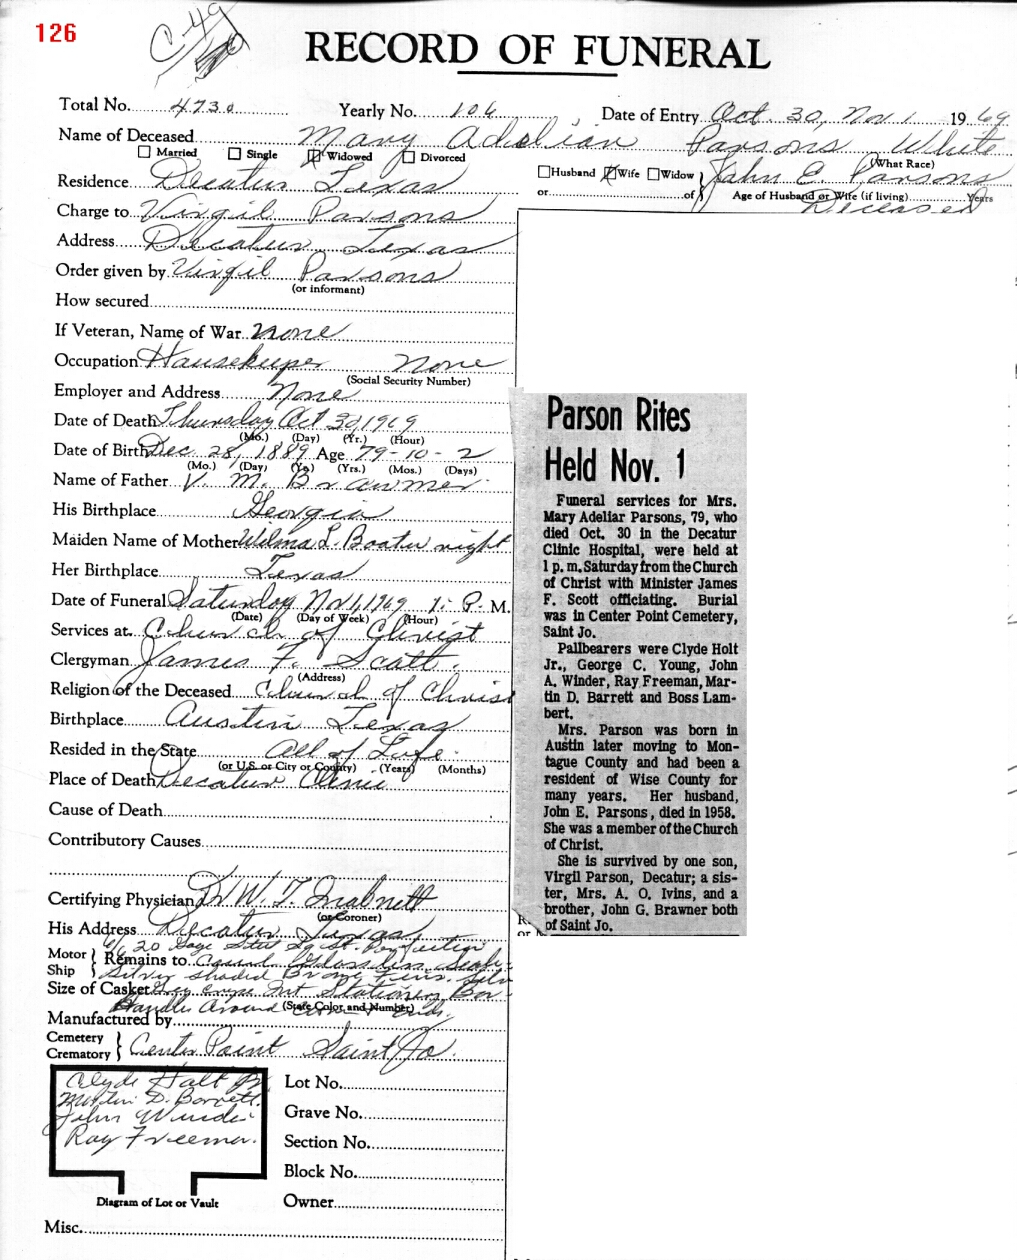 126
C-49
RECORD OF FUNERAL
Total No. 4730 Yearly No. 106 Date of Entry Oct. 30, Nov 1 1969
Name of Deceased Mary Adeliar Parsons White
Married Single Widowed Divorced (What Race)
Husband Wife Widow John E. Parsons
Residence Decatur Texas
or of Age of Husband or Wife (if living) Years
Deceased
Charge to Virgil Parsons
Address Decatur Texas
Order given by Virgil Parsons
(or informant)
How secured
If Veteran, Name of War None
Occupation Housekeeper None
(Social Security Number)
Employer and Address None
Date of Death Thursday Oct 30, 1969
(Mo.) (Day) (Yr.) (Hour)
Date of Birth Dec. 28, 1889 Age 79-10-2
(Mo.) (Day) (Yr.) (Yrs.) (Mos.) (Days)
Name of Father V. M. Brawner
His Birthplace Georgia
Maiden Name of Mother Wilma L. Boatwright
Her Birthplace Texas
Date of Funeral Saturday Nov 1, 1969 1: P. M.
(Date) (Day of Week) (Hour)
Services at Church of Christ
Clergyman James F. Scott.
(Address)
Religion of the Deceased Church of Christ
Birthplace Austin Texas
Resided in the State All of Life.
(or U.S. or City or County) (Years) (Months)
Place of Death Decatur Clinic
Cause of Death
Contributory Causes
Certifying Physician Dr W. T. Inabnett
(or Coroner)
His Address Decatur Texas
Motor Ship Remains to
6/6 20 Gage Steel
Silver Shaded
Size of Casket
Handles Around
(State Color and Number)
Manufactured by
Cemetery
Crematory Center Point Saint Jo.
Clyde Holt Jr.
Martin D. Barrett.
John Winder
Ray Freeman.
Diagram of Lot or Vault
Lot No.
Grave No.
Section No.
Block No.
Owner
Misc.
Parson Rites
Held Nov. 1
Funeral services for Mrs.
Mary Adeliar Parsons, 79, who
died Oct. 30 in the Decatur
Clinic Hospital, were held at
1 p. m. Saturday from the Church
of Christ with Minister James
F. Scott officiating. Burial
was in Center Point Cemetery,
Saint Jo.
Pallbearers were Clyde Holt
Jr., George C. Young, John
A. Winder, Ray Freeman, Mar-
tin D. Barrett and Boss Lam-
bert.
Mrs. Parson was born in
Austin later moving to Mon-
tague County and had been a
resident of Wise County for
many years. Her husband,
John E. Parsons, died in 1958.
She was a member of the Church
of Christ.
She is survived by one son,
Virgil Parson, Decatur; a sis-
ter, Mrs. A. O. Ivins, and a
brother, John G. Brawner both
of Saint Jo.